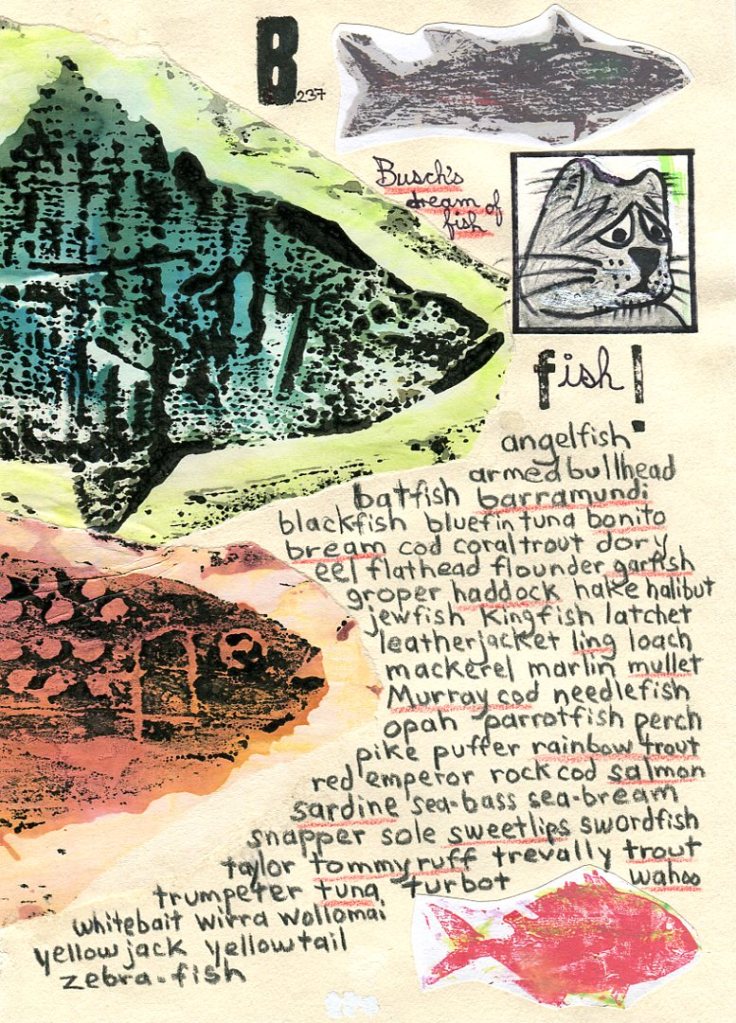 B
237
Busch's
dream of
fish
fish!
angelfish
armed bullhead
batfish barramundi
blackfish bluefin tuna bonito
bream cod coral trout dory
eel flathead flounder garfish
groper haddock hake halibut
jewfish Kingfish latchet
leatherjacket ling loach
mackerel marlin mullet
Murray cod needlefish
opah parrotfish perch
pike puffer rainbow trout
red emperor rock cod salmon
sardine sea-bass sea-bream
snapper sole sweetlips swordfish
taylor tommy ruff trevally trout
trumpeter tuna turbot wahoo
whitebait wirra wollomai
yellow jack yellowtail
zebra-fish